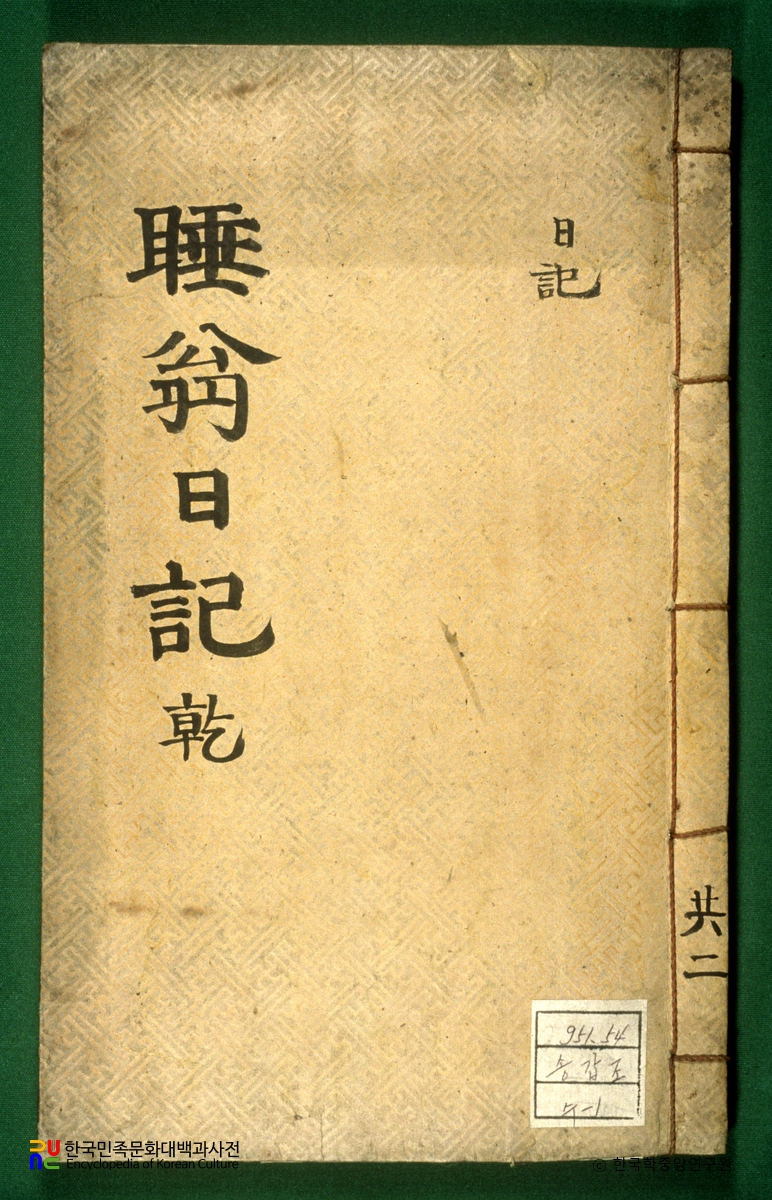 睡翁日記 乾
日記
共二
951.54
송갑조
수-1
한국민족문화대백과사전
Encyclopedia of Korean Culture
© 한국학중앙연구원